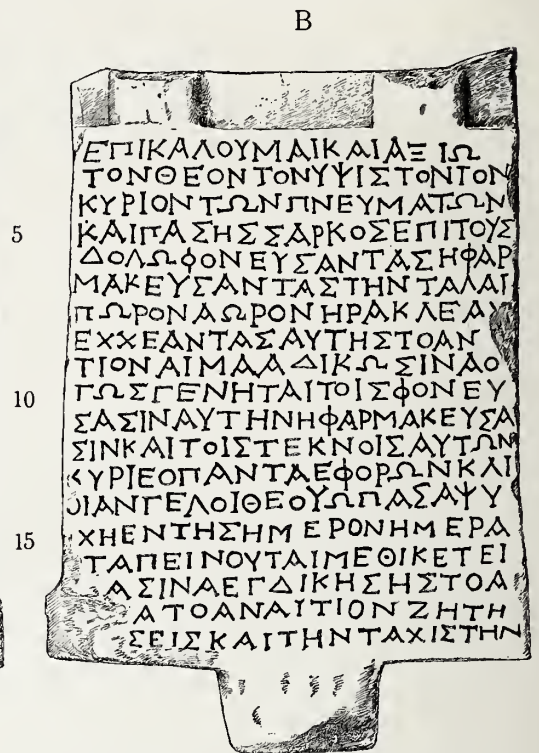 B
ΕΠΙΚΑΛΟΥΜΑΙΚΑΙΑΞΙΩ
ΤΟΝΘΕΟΝΤΟΝΥΨΙΣΤΟΝΤΟΝ
ΚΥΡΙΟΝΤΩΝΠΝΕΥΜΑΤΩΝ
5 ΚΑΙΠΑΣΗΣΣΑΡΚΟΣΕΠΙΤΟΥΣ
ΔΟΛΩΦΟΝΕΥΣΑΝΤΑΣΗΦΑΡ
ΜΑΚΕΥΣΑΝΤΑΣΤΗΝΤΑΛΑΙ
ΠΩΡΟΝΑΩΡΟΝΗΡΑΚΛΕΑΝ
ΕΧΧΕΑΝΤΑΣΑΥΤΗΣΤΟΑΝ
ΤΙΟΝΑΙΜΑΑΔΙΚΩΣΙΝΑΟ
10 ΓΩΣΓΕΝΗΤΑΙΤΟΙΣΦΟΝΕΥ
ΣΑΣΙΝΑΥΤΗΝΗΦΑΡΜΑΚΕΥΣΑ
ΣΙΝΚΑΙΤΟΙΣΤΕΚΝΟΙΣΑΥΤΩΝ
ΚΥΡΙΕΟΠΑΝΤΑΕΦΟΡΩΝΚΑΙ
ΟΙΑΝΓΕΛΟΙΘΕΟΥΩΠΑΣΑΨΥ
15 ΧΗΕΝΤΗΣΗΜΕΡΟΝΗΜΕΡΑ
ΤΑΠΕΙΝΟΥΤΑΙΜΕΘΙΚΕΤΕΙ
ΑΣΙΝΑΕΓΔΙΚΗΣΗΣΤΟΑ
ΑΤΟΑΝΑΙΤΙΟΝΖΗΤΗ
ΣΕΙΣΚΑΙΤΗΝΤΑΧΙΣΤΗΝ